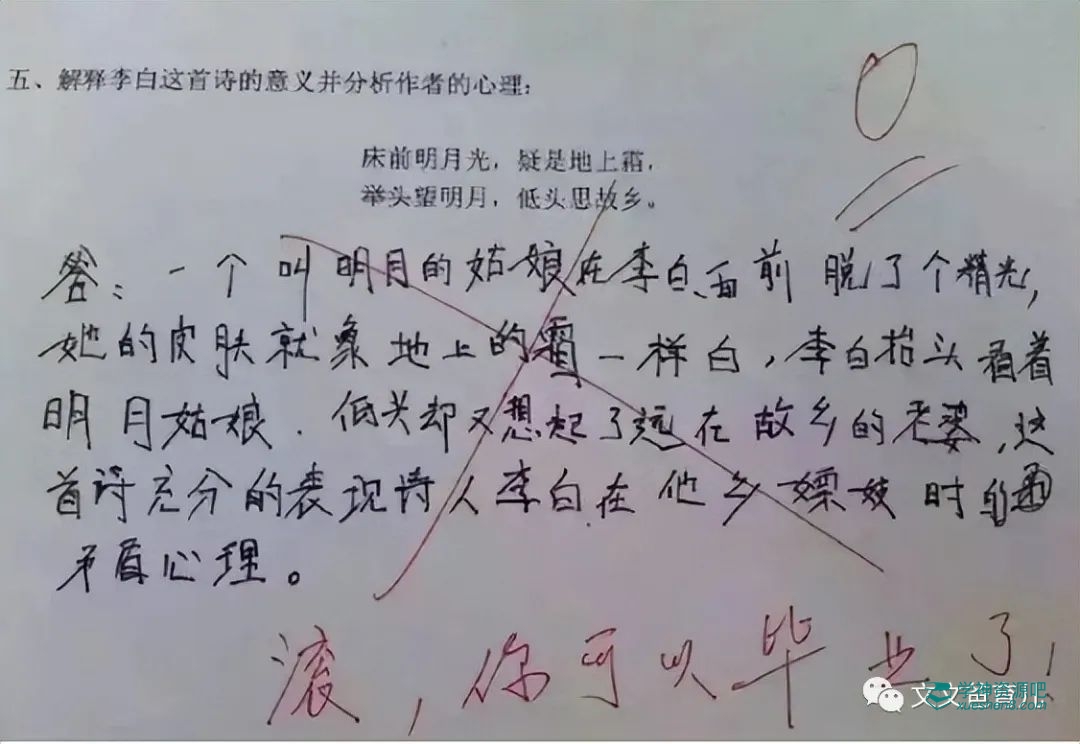 五、解释李白这首诗的意义并分析作者的心理:
床前明月光，疑是地上霜，
举头望明月，低头思故乡。
答：一个叫明月的姑娘在李白面前脱了个精光，
她的皮肤就象地上的霜一样白，李白抬头看着
明月姑娘．低头却又想起了远在故乡的老婆，这
首诗充分的表现诗人李白在他乡嫖妓时的
矛盾心理。
0
滚，你可以毕业了！
文文爸育儿
学神资源吧
xueshen8.com